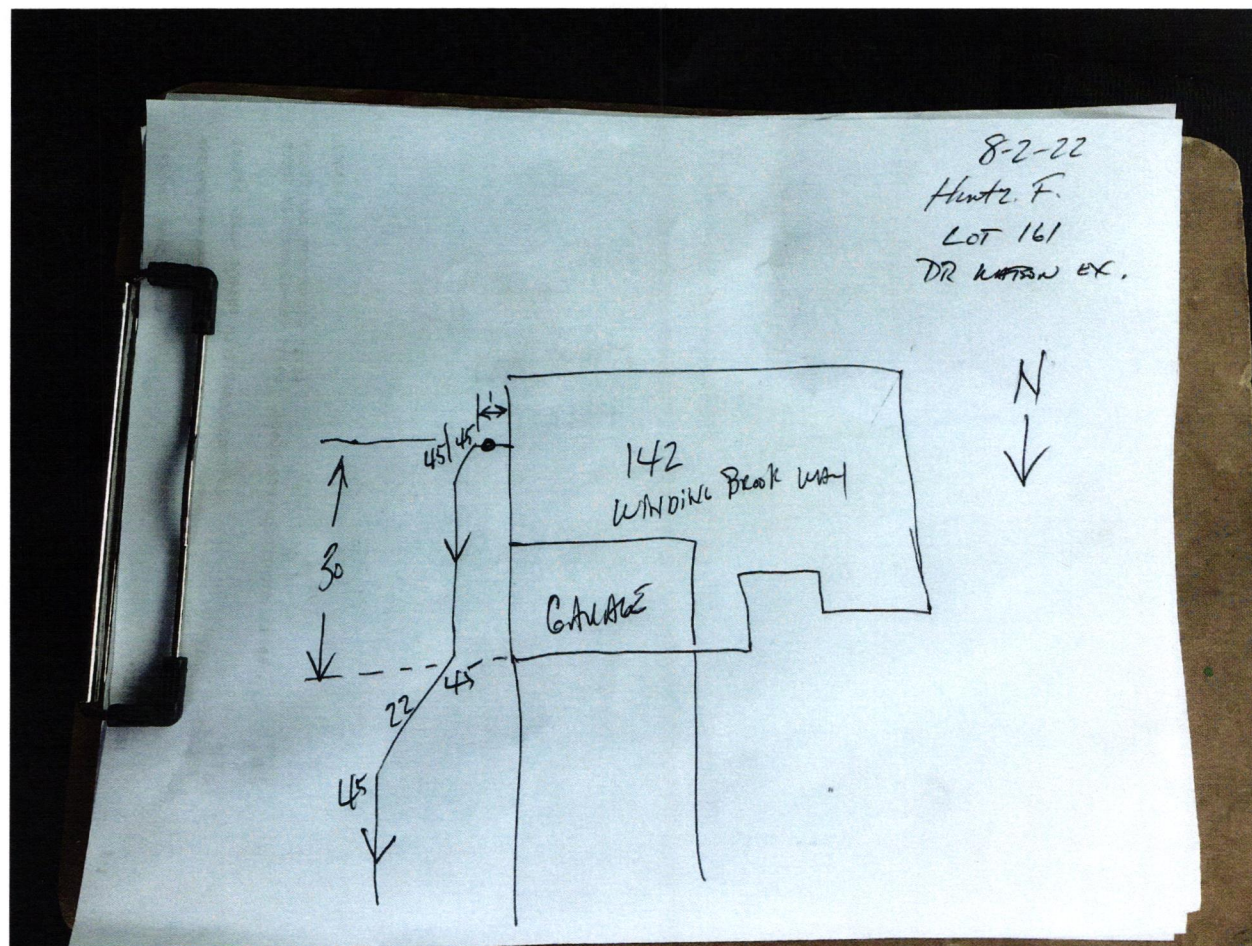 8-2-22
Huntz. F.
LOT 161
DR WATSON EX.
N
1'
45/45
142
WINDING BROOK WAY
30
GARAGE
45
22
45